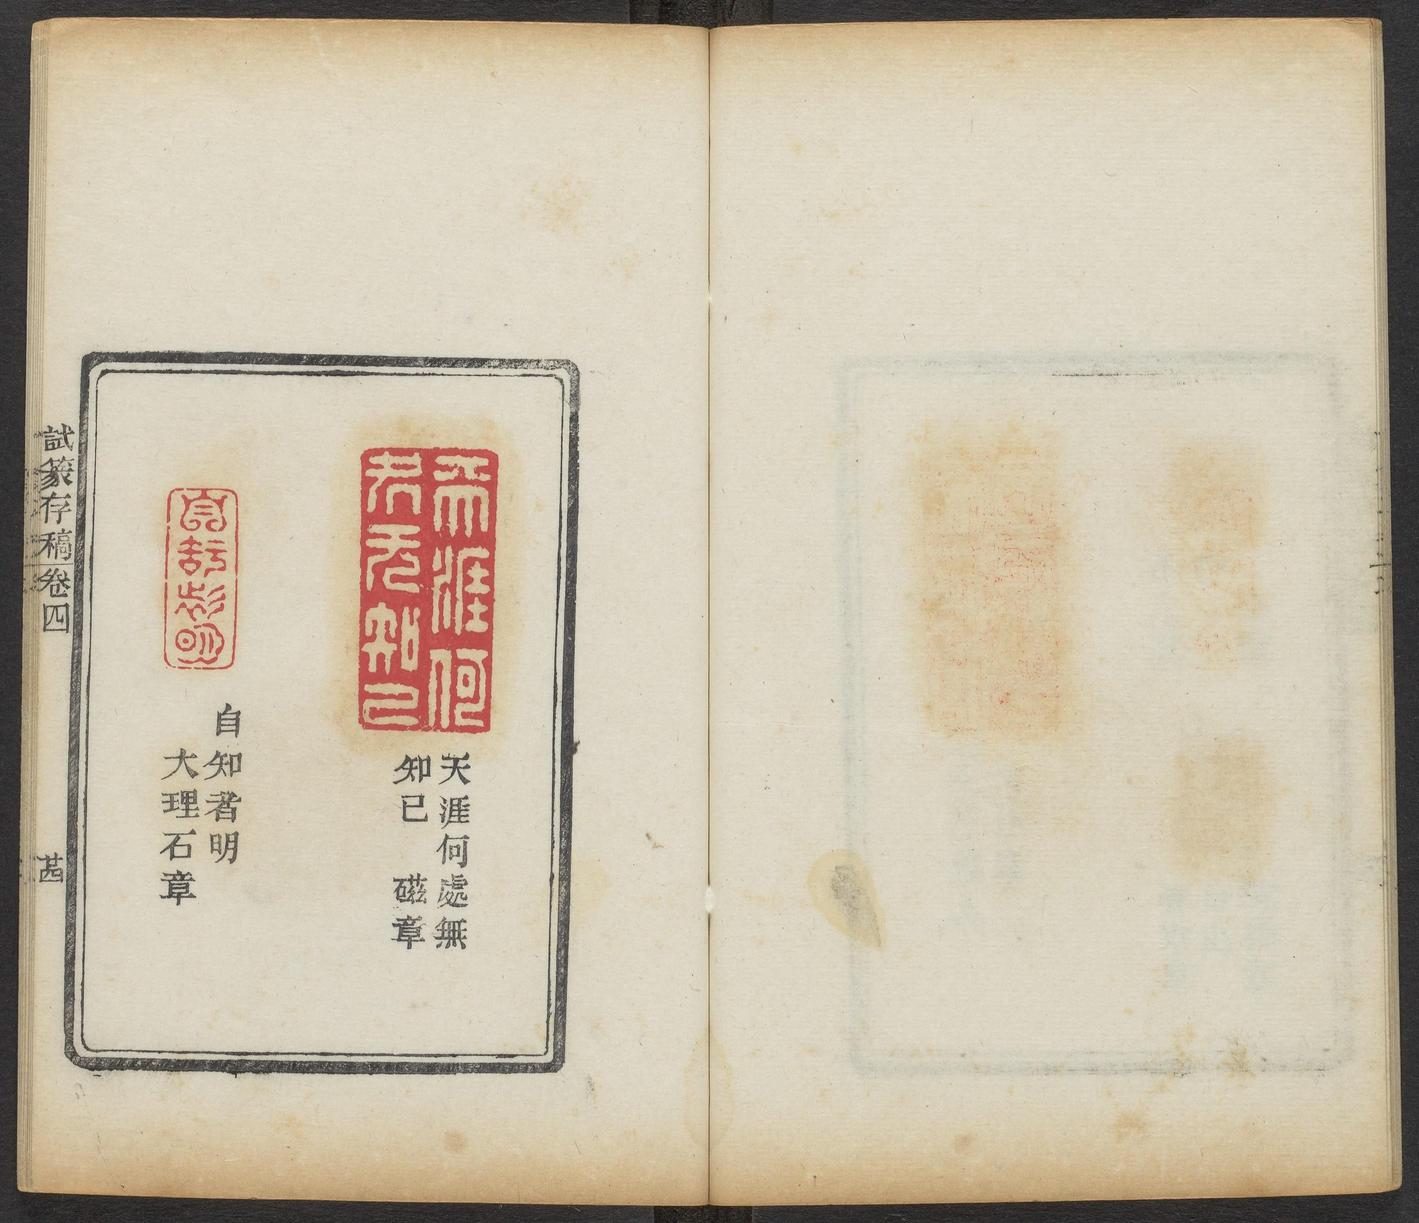 天涯何處無
知己
天涯何處無
知已　磁章
自知者明
自知者明
大理石章
試篆存稿卷四
茜